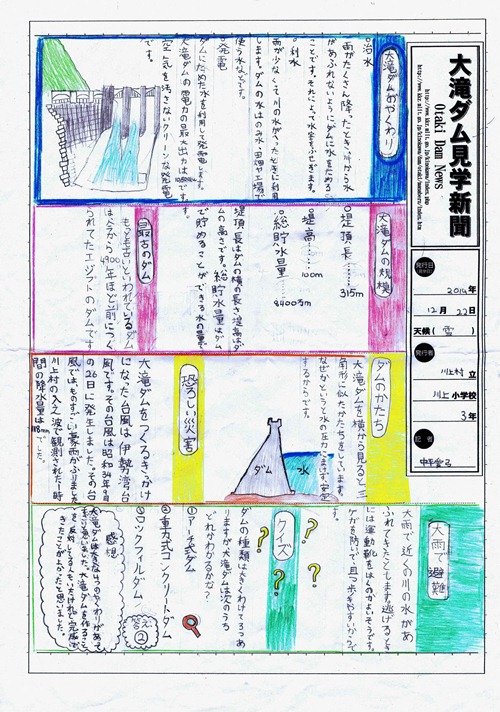 大滝ダム見学新聞
Otaki Dam News
発行日
2014年
12月22日
天候(雪)
発行者
川上村立
川上小学校
3年
記者
大滝ダムのやくわり
○治水
雨がたくさん降ったとき、川から水
があふれないようにダムに水をためる
ことです。それによって水害をふせぎます。
○利水
雨が少なくて川の水がへったときに利用
します。ダムの水はのみ水・田畑や工場で
使う水などです。
○発電
ダムにためた水を利用して発電します。
大滝ダムの電力の最大出力は
空気を汚さないクリーンな発電
です。
大滝ダムの規模
○堤頂長……315m
○堤高……100m
○総貯水量……8400万m
堤頂長はダムの横の長さ堤高はダ
ムの高さです。総貯水量はダム
で貯めることができる水の量です。
最古のダム
もっとも古いといわれているダム
は今から4900年ほど前につく
られてたエジプトのダムです
ダムのかたち
大滝ダムを横から見ると三
角形に似たかたちをしています。
なぜかというと水の圧力にまけず、安定
するからです。
ダム
水
恐ろしい災害
大滝ダムをつくるきっかけ
になった台風は伊勢湾台
風です。その台風は昭和34年9月
の26日に発生しました。その台
風ではものすごい豪雨がふりました
川上村の入之波で観測された1時
間の降水量は118mmでした。
大雨で避難
大雨で近くの川の水があ
ふれてきたとします。逃げるとき
には運動靴をはくのがよいそうです。
ケガを防いで、且つ歩きやすいからで
す。
クイズ
ダムの種類は大きくわけて3つあ
りますが大滝ダムは次のうち
どれかわかるかな?
①アーチ式ダム
②重力式コンクリートダム
③ロックフィルダム
答え②
感想